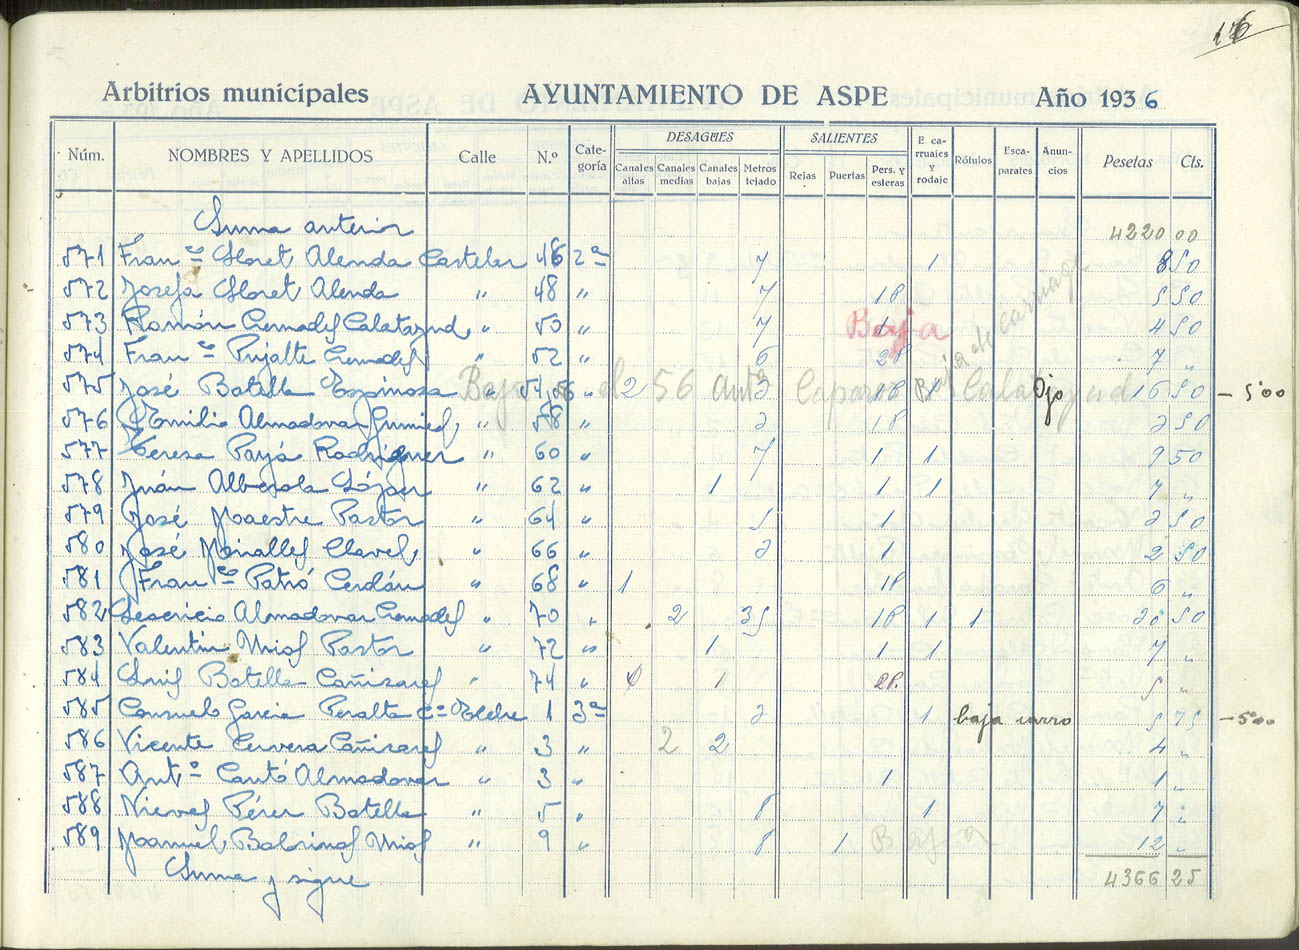 176
Arbitrios municipales AYUNTAMIENTO DE ASPE Año 1936
Núm. NOMBRES Y APELLIDOS Calle N.º Categoría DESAGÜES Canales altas Canales medias Canales bajas Metros tejado SALIENTES Rejas Puertas Pers. y esteras E. carruajes y rodaje Rótulos Escaparates Anuncios Pesetas Cts.
Suma anterior 4220 00
571 Fran co Lloret Alenda Castelar 46 2ª 7 1 8 50
572 Josefa Lloret Alenda " 48 " 7 18 5 50
573 Ramón Cremades Calatayud " 50 " 7 Baja 1 4 50
574 Fran co Pujalte Cremades " 52 " 6 28 7 "
575 José Botella Espinosa " 54,56 " 2 2 18 1 Ojo 16 50 - 5'00
Baja el 56 Calatayud
Baja de carruaje
576 Emilio Almodovar " 58 " 2 18 2 50
577 Teresa Payá Rodríguez " 60 " 7 1 1 9 50
578 Juán Alberola López " 62 " 1 1 1 7 "
579 José Maestre Pastor " 64 " 5 1 2 50
580 José Mirallles Clavel " 66 " 2 1 2 50
581 Fran co Patró Cerdán " 68 " 1 18 6 "
582 Almodovar Cremades " 70 " 2 35 18 1 1 26 50
583 Valentín Mira Pastor " 72 " 1 1 1 7 "
584 Luis Botella Cañizares " 74 " 1 28 5 "
585 Consuelo García Peralta Cª Elche 1 3ª 2 1 baja carro 5 75 - 5'00
586 Vicente Cervera Cañizares " 3 " 2 2 4 "
587 Antº Cantó Almodovar " 3 " 1 1 "
588 Nieves Pérez Botella " 5 " 8 1 7 "
589 Manuel Mira " 9 " 8 1 Baja 12 "
Suma y sigue 4366 25